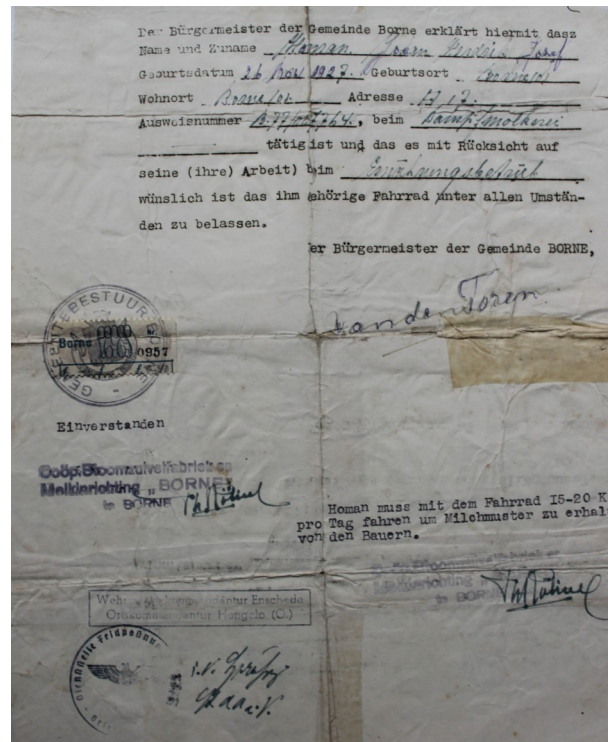 Der Bürgermeister der Gemeinde Borne erklärt hiermit dasz
Name und Zuname Homan
Geburtsdatum 26 Nov 1927. Geburtsort
Wohnort Borne/Ov. Adresse
Ausweisnummer beim Dampfmolkerei
tätig ist und das es mit Rücksicht auf
seine (ihre) Arbeit) beim Ernährungsbetrieb
wünslich ist das ihm gehörige Fahrrad unter allen Umstän-
den zu belassen.
er Bürgermeister der Gemeinde BORNE,
van den Toren
GEMEENTEBESTUUR
Borne
0957
Einverstanden
Coöp. Stoomzuivelfabriek en
Melkinrichting „BORNE"
te BORNE
Homan muss mit dem Fahrrad 15-20 K
pro Tag fahren um Milchmuster zu erhal
von den Bauern.
Melkinrichting
te BOR
Enschede
Ortskommandantur Hengelo (O.)
Dienststelle Feldpostnum
i.V.